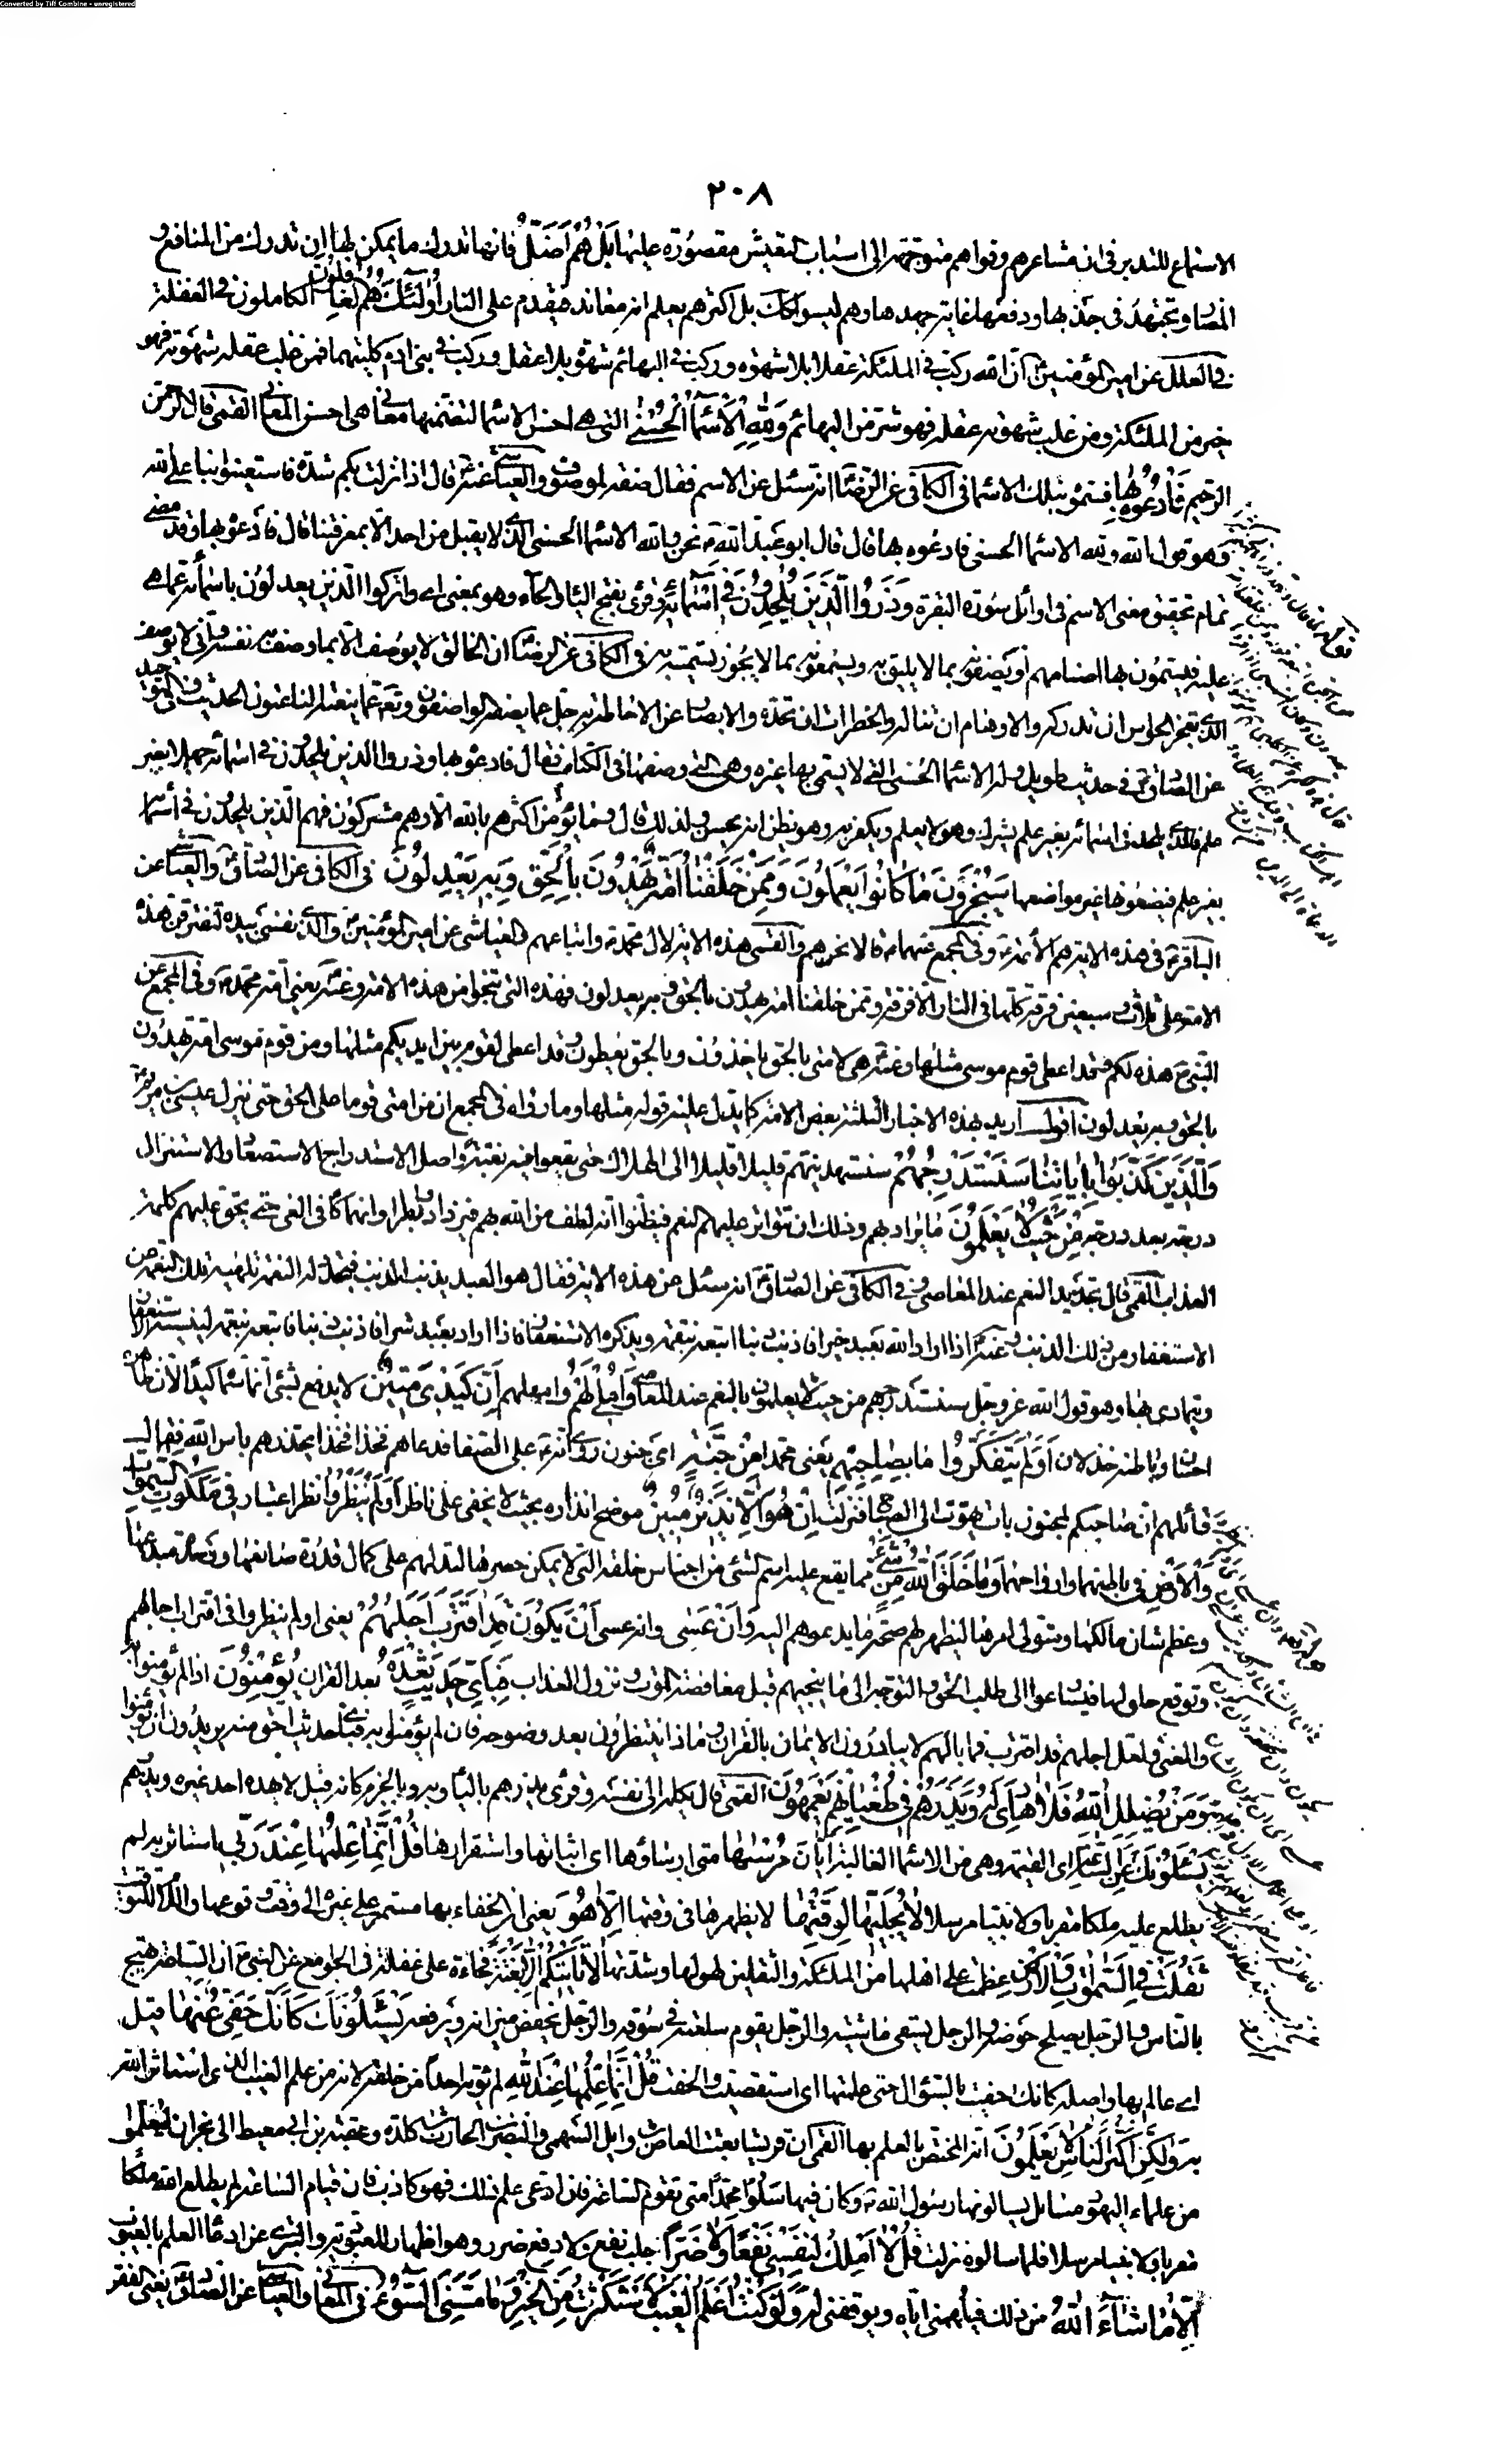 Converted by Tiff Combine - unregistered
٢٠٨
الاستماع للتدبر فى ان مشاعرهم وقواهم متوجّهة الى اسباب التعيش مقصورة عليها بَلْ هُمْ أَضَلُّ فانها تدرك ما يمكن لها ان تدرك من المنافع و
المضار وتجتهد فى جذبها ودفعها غاية جهدها وهم ليسوا كك بل اكثرهم يعلم انه معاند فيقدم على النار أُولَئِكَ هُمُ الْغَافِلُونَ الكاملون فى الغفلة
فى العلل عن امير المؤمنين ان الله ركّب فى الملئكة عقلا بلا شهوة وركب فى البهائم شهوة بلا عقل وركب فى بنى ادم كلتيهما فمن غلب عقله شهوته فهو
خير من الملئكة ومن غلب شهوته عقله فهو شرّ من البهائم وَلِلَّهِ الْأَسْمَاءُ الْحُسْنَى التى هى احسن الاسماء لتضمنها معانى هى احسن المعانى القمى قال الرحمن
الرحيم فَادْعُوهُ بِهَا فسمّوه بتلك الاسماء فى الكافى عن الرضا انه سئل عن الاسم فقال صفة لموصوف والعياشى عنه قال اذا نزلت بكم شدّة فاستعينوا بنا على الله
وهو قول الله ولله الاسماء الحسنى فادعوه بها قال قال ابو عبد الله نحن والله الاسماء الحسنى الذى لا يقبل من احد الا بمعرفتنا قال فادعوه بها وقد مضى
تمام تحقيق معنى الاسم فى اوائل سورة البقرة وَذَرُوا الَّذِينَ يُلْحِدُونَ فِي أَسْمَائِهِ وقرئ بفتح الياء والحاء وهو بمعنى اى واتركوا الذين يعدلون باسمائه عما هى
عليه فيسمّون بها اصنامهم او يصفونه بما لا يليق به ويسمونه بما لا يجوز تسميته به فى الكافى عن الرضا ان الخالق لا يوصف الا بما وصف به نفسه وانى لا يوصف
الذى تعجز الحواس ان تدركه والاوهام ان تناله والخطرات ان تحدّه والابصار عن الاحاطة به جل عما يصفه الواصفون وتعالى عما ينعته الناعتون الحديث وفى التوحيد
عن الصادق فى حديث طويل وله الاسماء الحسنى التى لا يسمى بها غيره وهى التى وصفها فى الكتاب فقال فادعوه بها وذروا الذين يلحدون فى اسمائه جهلا بغير
علم فالذى يلحد فى اسمائه بغير علم يشرك وهو لا يعلم ويكفر به وهو يظن انه يحسن ولذلك قال وما يؤمن اكثرهم بالله الا وهم مشركون فهم الذين يلحدون فى أسمائه
بغير علم فيضعونها غير مواضعها سَيُجْزَوْنَ مَا كَانُوا يَعْمَلُونَ وَمِمَّنْ خَلَقْنَا أُمَّةٌ يَهْدُونَ بِالْحَقِّ وَبِهِ يَعْدِلُونَ فى الكافى عن الصادق والعياشى عن
الباقر فى هذه الاية هم الأئمة وفى المجمع عنهما قالا نحن هم والقمى هذه الاية لال محمد واتباعهم العياشى عن امير المؤمنين والذى نفسى بيده لتفترقن هذه
الامة على ثلاث وسبعين فرقة كلها فى النار الا فرقة وممن خلقنا امة يهدون بالحق وبه يعدلون فهذه التى تنجوا من هذه الامة وعنه يعنى امة محمد وفى المجمع عن
النبى هذه لكم وقد اعطى قوم موسى مثلها وعنه هى لامتى بالحق ياخذون وبالحق يعطون وقد اعطى لقوم بين ايديكم مثلها ومن قوم موسى امة يهدون
بالحق وبه يعدلون اقول اريد بهذه الاخبار الثلثة بعض الامة كما يدل عليه قوله مثلها وما رواه فى المجمع ان من امتى قوما على الحق حتى ينزل عيسى بن مريم
وَالَّذِينَ كَذَّبُوا بِآيَاتِنَا سَنَسْتَدْرِجُهُمْ سنستدينهم قليلا قليلا الى الهلاك حتى يقعوا فيه بغتة واصل الاستدراج الاستصعاد والاستنزال
درجة بعد درجة مِنْ حَيْثُ لَا يَعْلَمُونَ ما يراد بهم وذلك ان تتواتر عليهم النعم فيظنوا انه لطف من الله بهم فيزدادوا بطرا وانهماكا فى الغى حتى يحق عليهم كلمة
العذاب القمى قال تجديد النعم عند المعاصى فى الكافى عن الصادق انه سئل عن هذه الاية فقال هو العبد يذنب الذنب فيجدد له النعمة تلهيه تلك النعمة عن
الاستغفار من ذلك الذنب وعنه اذا اراد الله بعبد خيرا فاذنب ذنبا اتبعه بنقمة ويذكره الاستغفار فاذا اراد بعبد شرا فاذنب ذنبا فاتبعه بنعمة لينسيه الاستغفار
ويتمادى بها وهو قول الله عز وجل سنستدرجهم من حيث لا يعلمون بالنعم عند المعاصى وَأُمْلِي لَهُمْ وامهلهم إِنَّ كَيْدِي مَتِينٌ لا يدفع بشئ انما سماه كيدا لان ظاهره
احسان وباطنه خذلان أَوَلَمْ يَتَفَكَّرُوا مَا بِصَاحِبِهِمْ يعنى محمدا مِنْ جِنَّةٍ اى جنون روى انه على الصفا فدعاهم فخذا فخذا يحذرهم باس الله فقال
قائلهم ان صاحبكم لمجنون بات يهوّت الى الصباح فنزلت إِنْ هُوَ إِلَّا نَذِيرٌ مُبِينٌ موضح انذاره بحيث لا يخفى على ناظر أَوَلَمْ يَنْظُرُوا نظر اعتبار فِي مَلَكُوتِ السَّمَوَاتِ
وَالْأَرْضِ فى باطنهما وارواحهما وَمَا خَلَقَ اللَّهُ مِنْ شَيْءٍ مما يقع عليه اسم الشئ من اجناس خلقه التى لا يمكن حصرها لتدلهم على كمال قدرة صانعها ووحدة مبدعها
وعظم شان مالكها ومتولى امرها ليظهر لهم صحّة ما يدعوهم اليه وَأَنْ عَسَى وانه عسى أَنْ يَكُونَ قَدِ اقْتَرَبَ أَجَلُهُمْ يعنى اولم ينظروا فى اقتراب اجالهم
وتوقع حلولها فيسارعوا الى طلب الحق والتوجه الى ما ينجيهم قبل مغافصة الموت ونزول العذاب فَبِأَيِّ حَدِيثٍ بَعْدَهُ بعد القران يُؤْمِنُونَ اذا لم يؤمنوا به
والمعنى ولعل اجلهم قد اقترب فما بالهم لا يبادرون الايمان بالقران وماذا ينتظرون بعد وضوحه فان لم يؤمنوا به فباى حديث احق منه يريدون ان يؤمنوا
به مَنْ يُضْلِلِ اللَّهُ فَلَا هَادِيَ لَهُ وَيَذَرُهُمْ فِي طُغْيَانِهِمْ يَعْمَهُونَ القمى قال يكله الى نفسه وقرئ يذرهم بالياء وبه وبالجزم كانه قيل لا يهده احد غيره ويذرهم
يَسْئَلُونَكَ عَنِ السَّاعَةِ اى القيمة وهى من الاسماء الغالبة أَيَّانَ مُرْسَاهَا متى ارساؤها اى اثباتها واستقرارها قُلْ إِنَّمَا عِلْمُهَا عِنْدَ رَبِّي استاثر به لم
يطلع عليه ملكا مقربا ولا نبيا مرسلا لَا يُجَلِّيهَا لِوَقْتِهَا لا يظهرها فى وقتها إِلَّا هُوَ يعنى ان الخفاء بها مستمر على غيره الى وقت وقوعها واللام للتوقيت
ثَقُلَتْ فِي السَّمَوَاتِ وَالْأَرْضِ عظمت على اهلها من الملئكة والثقلين لهولها وشدتها لَا تَأْتِيكُمْ إِلَّا بَغْتَةً فجاءة على غفلة فى الجوامع عن النبى ان الساعة تهيج
بالناس والرجل يصلح حوضه والرجل يسقى ماشيته والرجل يقوم سلعته فى سوقه والرجل يخفض ميزانه ويرفعه يَسْئَلُونَكَ كَأَنَّكَ حَفِيٌّ عَنْهَا قيل
اى عالم بها واصله كانك احفيت بالسؤال حتى علمتها اى استقصيت والحفت قُلْ إِنَّمَا عِلْمُهَا عِنْدَ اللَّهِ لم يؤته احدا من خلقه لانه من علم الغيب الذى استاثر الله
به وَلَكِنَّ أَكْثَرَ النَّاسِ لَا يَعْلَمُونَ انه المختص بالعلم بها القمى ان قريشا بعثت العاص بن وايل السهمى والنضر بن الحارث بن كلدة وعقبة بن ابى معيط الى نجران ليتعلموا
من علماء اليهود مسائل يسالونها رسول الله وكان فيها سلوا محمدا متى تقوم الساعة فان ادعى علم ذلك فهو كاذب فان قيام الساعة لم يطلع الله ملكا
مقربا ولا نبيا مرسلا فلما سالوه نزلت قُلْ لَا أَمْلِكُ لِنَفْسِي نَفْعًا وَلَا ضَرًّا جلب نفع ولا دفع ضرر وهو اظهار للعبودية والتبرى عن ادعاء العلم بالغيوب
إِلَّا مَا شَاءَ اللَّهُ من ذلك فيلهمنى اياه ويوفقنى له وَلَوْ كُنْتُ أَعْلَمُ الْغَيْبَ لَاسْتَكْثَرْتُ مِنَ الْخَيْرِ وَمَا مَسَّنِيَ السُّوءُ فى المعانى والعياشى عن الصادق يعنى الفقر